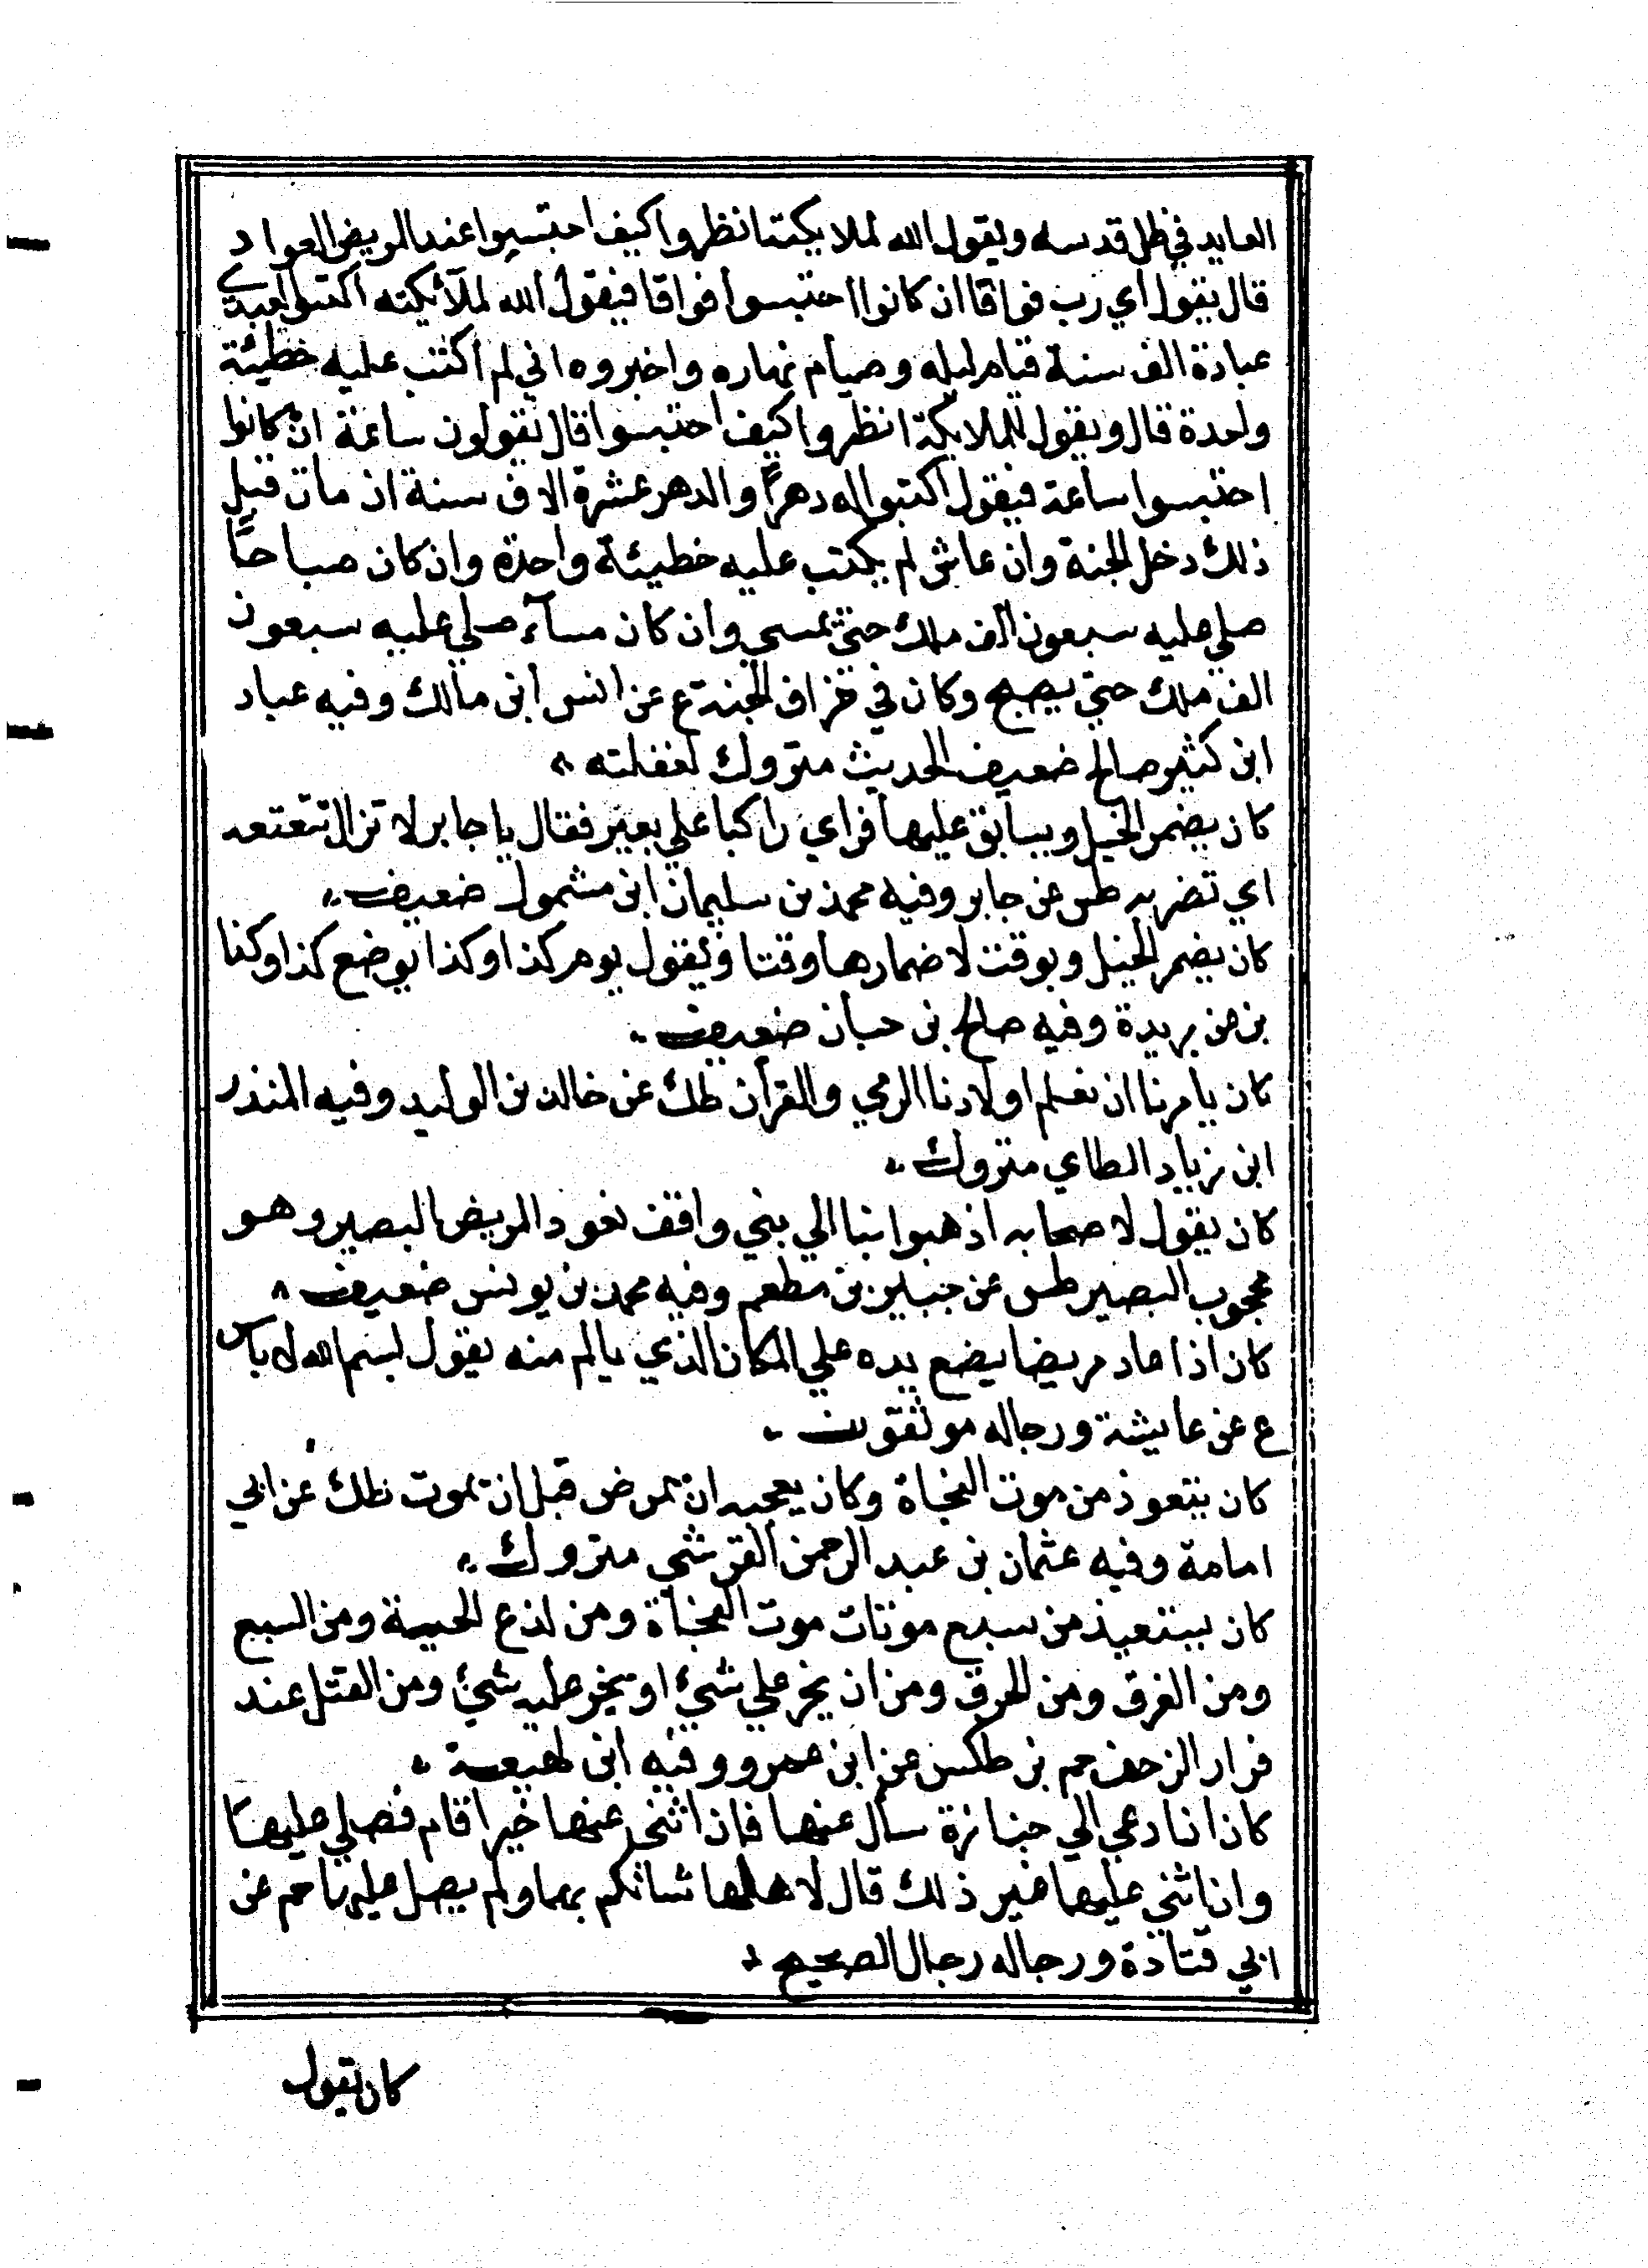 العايد في ظل قدسه ويقول الله لملايكته انظروا كيف احتبسوا عند المريض العواد
قال يقول اي رب فواقا ان كانوا احتبسوا فواقا فيقول الله لملآئكته اكتبوا لعبدي
عبادة الف سنة قيام ليله وصيام نهاره واخبروه اني لم اكتب عليه خطيئة
واحدة قال ويقول للملايكة انظروا كيف احتبسوا قال يقولون ساعة ان كانوا
احتبسوا ساعة فيقول اكتبوا له دهرًا والدهر عشرة الاف سنة ان مات قبل
ذلك دخل الجنة وان عاش لم يكتب عليه خطيئة واحدة وان كان صباحًا
صلي عليه سبعون الف ملك حتي يمسي وان كان مسآء صلي عليه سبعون
الف ملك حتي يصبح وكان في خراف الجنة ع عن انس ابن مالك وفيه عباد
ابن كثير صالح ضعيف الحديث متروك لغفلته
كان يضمر الخيل ويسابق عليها فراي راكبا علي بعير فقال يا جابر لا تزال تتعتعه
اي تضربه طس عن جابر وفيه محمد بن سليمان ابن مشمول ضعيف
كان يضمر الخيل ويوقت لاضمارها وقتا ويقول يوم كذا وكذا بوضع كذا وكذا
بز عن بريدة وفيه صالح بن حبان ضعيف
كان يامرنا ان نعلم اولادنا الرمي والقرآن طك عن خالد بن الوليد وفيه المنذر
ابن زياد الطاي متروك
كان يقول لاصحابه اذهبوا بنا الي بني واقف نعود المريض البصير وهو
محجوب البصير طس عن جبير بن مطعم وفيه محمد بن يونس ضعيف
كان اذا عاد مريضا يضع يده علي المكان الذي يالم منه يقول بسم الله لا باس
ع عن عايشة ورجاله موثقون
كان يتعوذ من موت الفجاة وكان يعجبه ان يمرض قبل ان يموت طك عن ابي
امامة وفيه عثمان بن عبد الرحمن القرشي متروك
كان يستعيذ من سبع موتات موت الفجاة ومن لدغ الحية ومن السبع
ومن الغرق ومن الحرق ومن ان يخر علي شيء او يخر عليه شيء ومن القتل عند
فرار الزحف حم بز طكس عن ابن عمرو وفيه ابن لهيعة
كان اذا دعي الي جنازة سأل عنها فان اثني عنها خيرا قام فصلي عليها
وان اثني عليها غير ذلك قال لاهلها شانكم بها ولم يصل عليها حم عن
ابي قتادة ورجاله رجال الصحيح
كان يقول